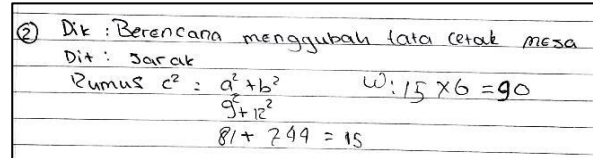 ② Dik : Berencana menggubah tata cetak mesa
Dit : Jarak
Rumus c² : a² + b² W : 15 × 6 = 90
9² + 12²
81 + 244 = 15